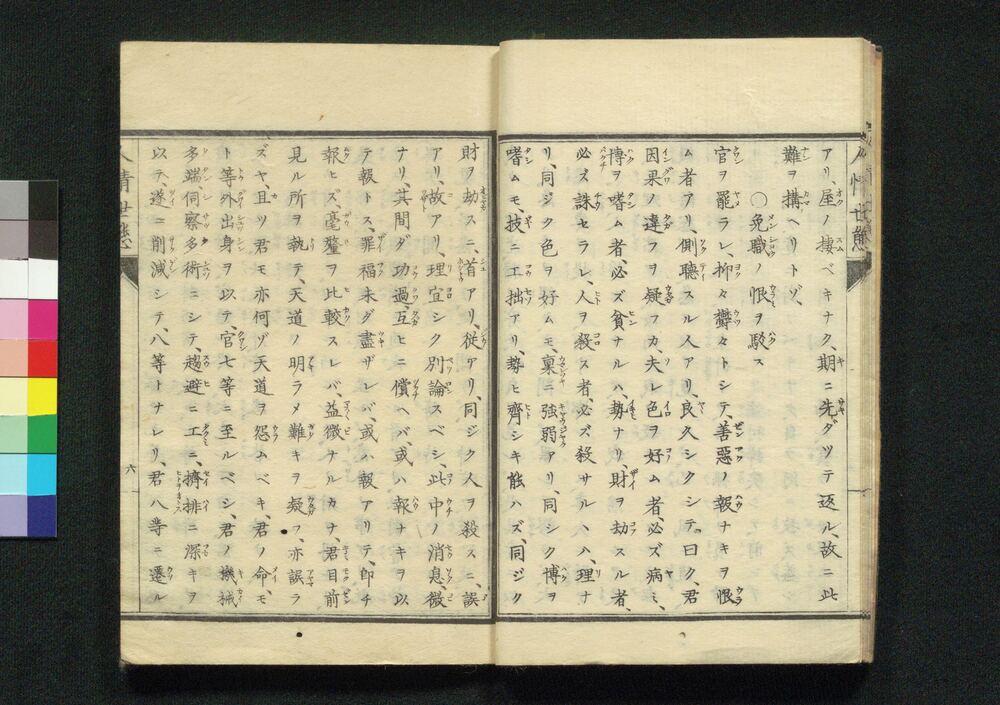 アリ、屋ノ摟ベキナク、期ニ先ダツテ返ル、故ニ此
難ヲ搆ヘリトゾ、
〇免職ノ恨ヲ駁ス
官ヲ罷ラレ、抑々欝々トシテ、善惡ノ報ナキヲ恨
ム者アリ、側聽スル人アリ、良久シクシテ曰ク、君
因果ノ違ヲヲ疑フカ夫レ色ヲ好ム者、必ズ病ミ、
博ヲ嗜ム者、必ズ貧ナルハ、勢ナリ、財ヲ劫スル者、
必ズ誅セラレ、人ヲ殺ス者、必ズ殺サルハ、理ナ
リ、同ジク色ヲ好ムモ、稟ニ強弱アリ、同シク博ヲ
嗜ムモ、技ニ工拙アリ、勢ヒ齊シキ能ハズ、同ジク
財ヲ劫スニ、首アリ、従アリ、同ジク人ヲ殺スニ、誤
アリ、故アリ、理宜シク別論スベシ、此中ノ消息、微
ナリ、其間ダ功過互ヒニ償ヘバ、或ハ報ナキヲ以
テ報トス、罪福未ダ盡ザレバ、或ハ報アリテ、即チ
報ヒズ、毫釐ヲ比較スレバ、益微ナルカナ、君目前
見ル所ヲ執テ、天道ノ明ラメ難キヲ疑フ、亦誤ラ
ズヤ、且ツ君モ亦何ゾ天道ヲ怨ムベキ、君ノ命、モ
ト等外出身ヲ以テ、官七等ニ至ルベシ、君ノ機械
多端、伺察多術ニシテ、趨避ニ工ニ、擠排ニ深キヲ
以テ、遂ニ削減シテ、八等トナレリ、君八等ニ遷ル
人情世態
六